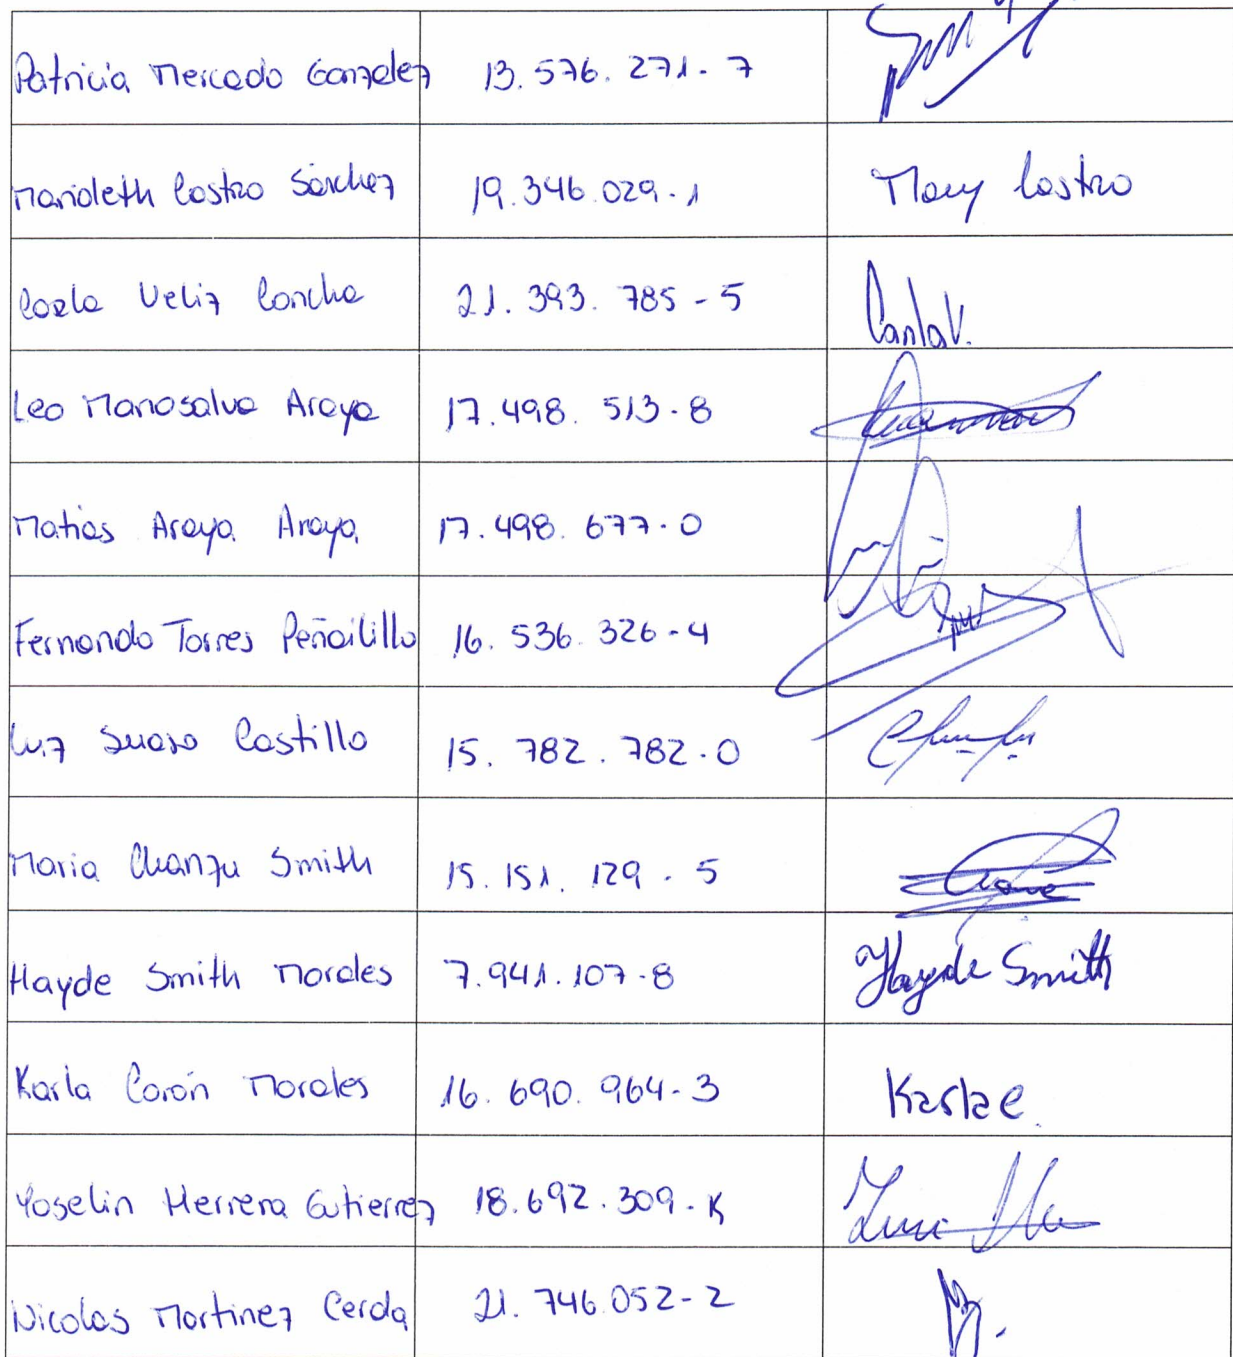 Patricia Mercado Gonzalez 13.576.271-7
Marioleth Castro Sánchez 19.346.029-1 Mary Castro
Carla Veliz Concha 21.393.785-5 CarlaV.
Leo Manosalva Araya 17.498.513-8
Matias Araya Araya 17.498.677-0
Fernando Torres Peñailillo 16.536.326-4
Luz Suaso Castillo 15.782.782-0
Maria Chanzu Smith 15.151.129-5
Hayde Smith Morales 7.941.107-8 Hayde Smith
Karla Corón Morales 16.690.964-3 Karlae.
Yoselin Herrera Gutierrez 18.692.309-K
Nicolas Martinez Cerda 21.746.052-2